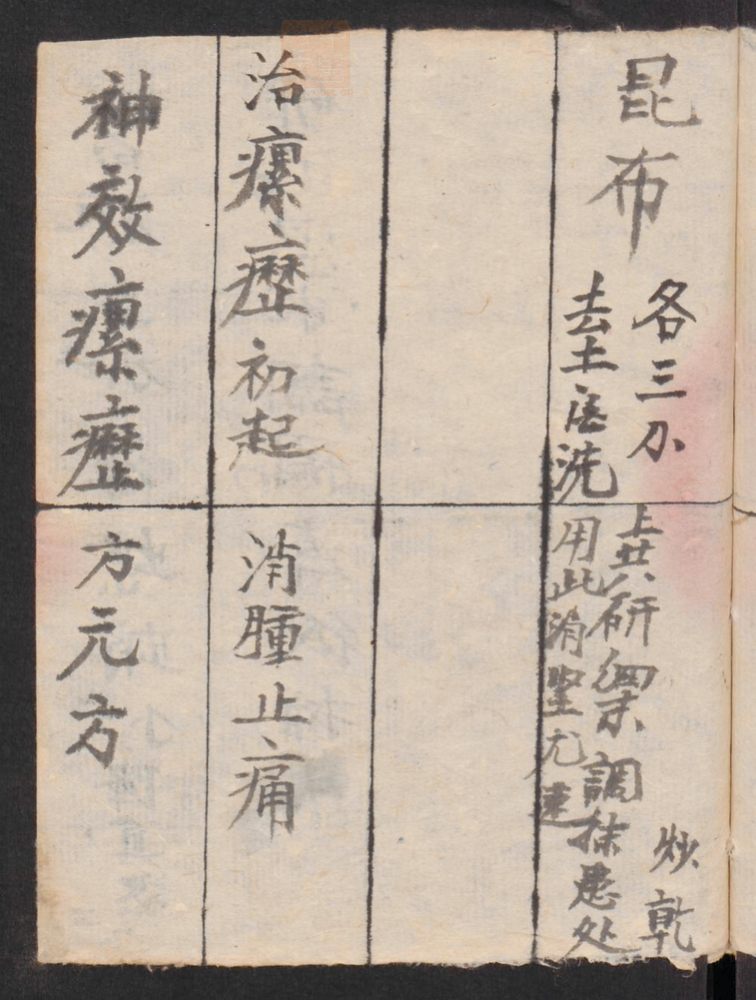 昆布
各三
去土洗
炒乾
上共研細末調抹患处
用此消堅尤速
治瘰癧初起
消腫止痛
神效瘰癧方元方